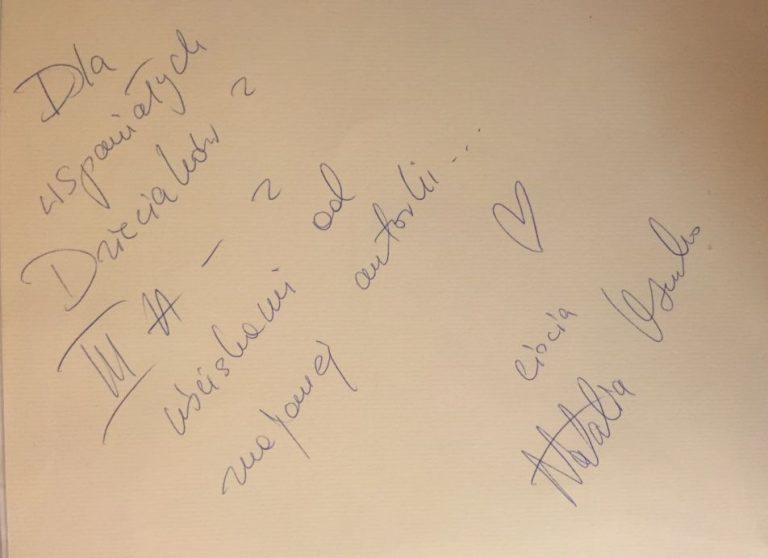 Dla
wspaniałych
Dzieciaków z
III A - z
uściskami od
znajomej autorki...
♡
ciocia
Natalia Usenko